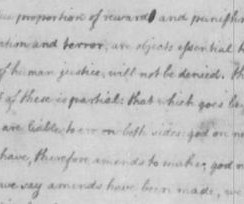 proportion of reward and punish
ation and terror, are objects essential t
of human justice, will not be denied. th
of these is partial: that which goes be
are liable to err on both sides: god on n
have, therefore amends to make; god n
we say amends have been made, we